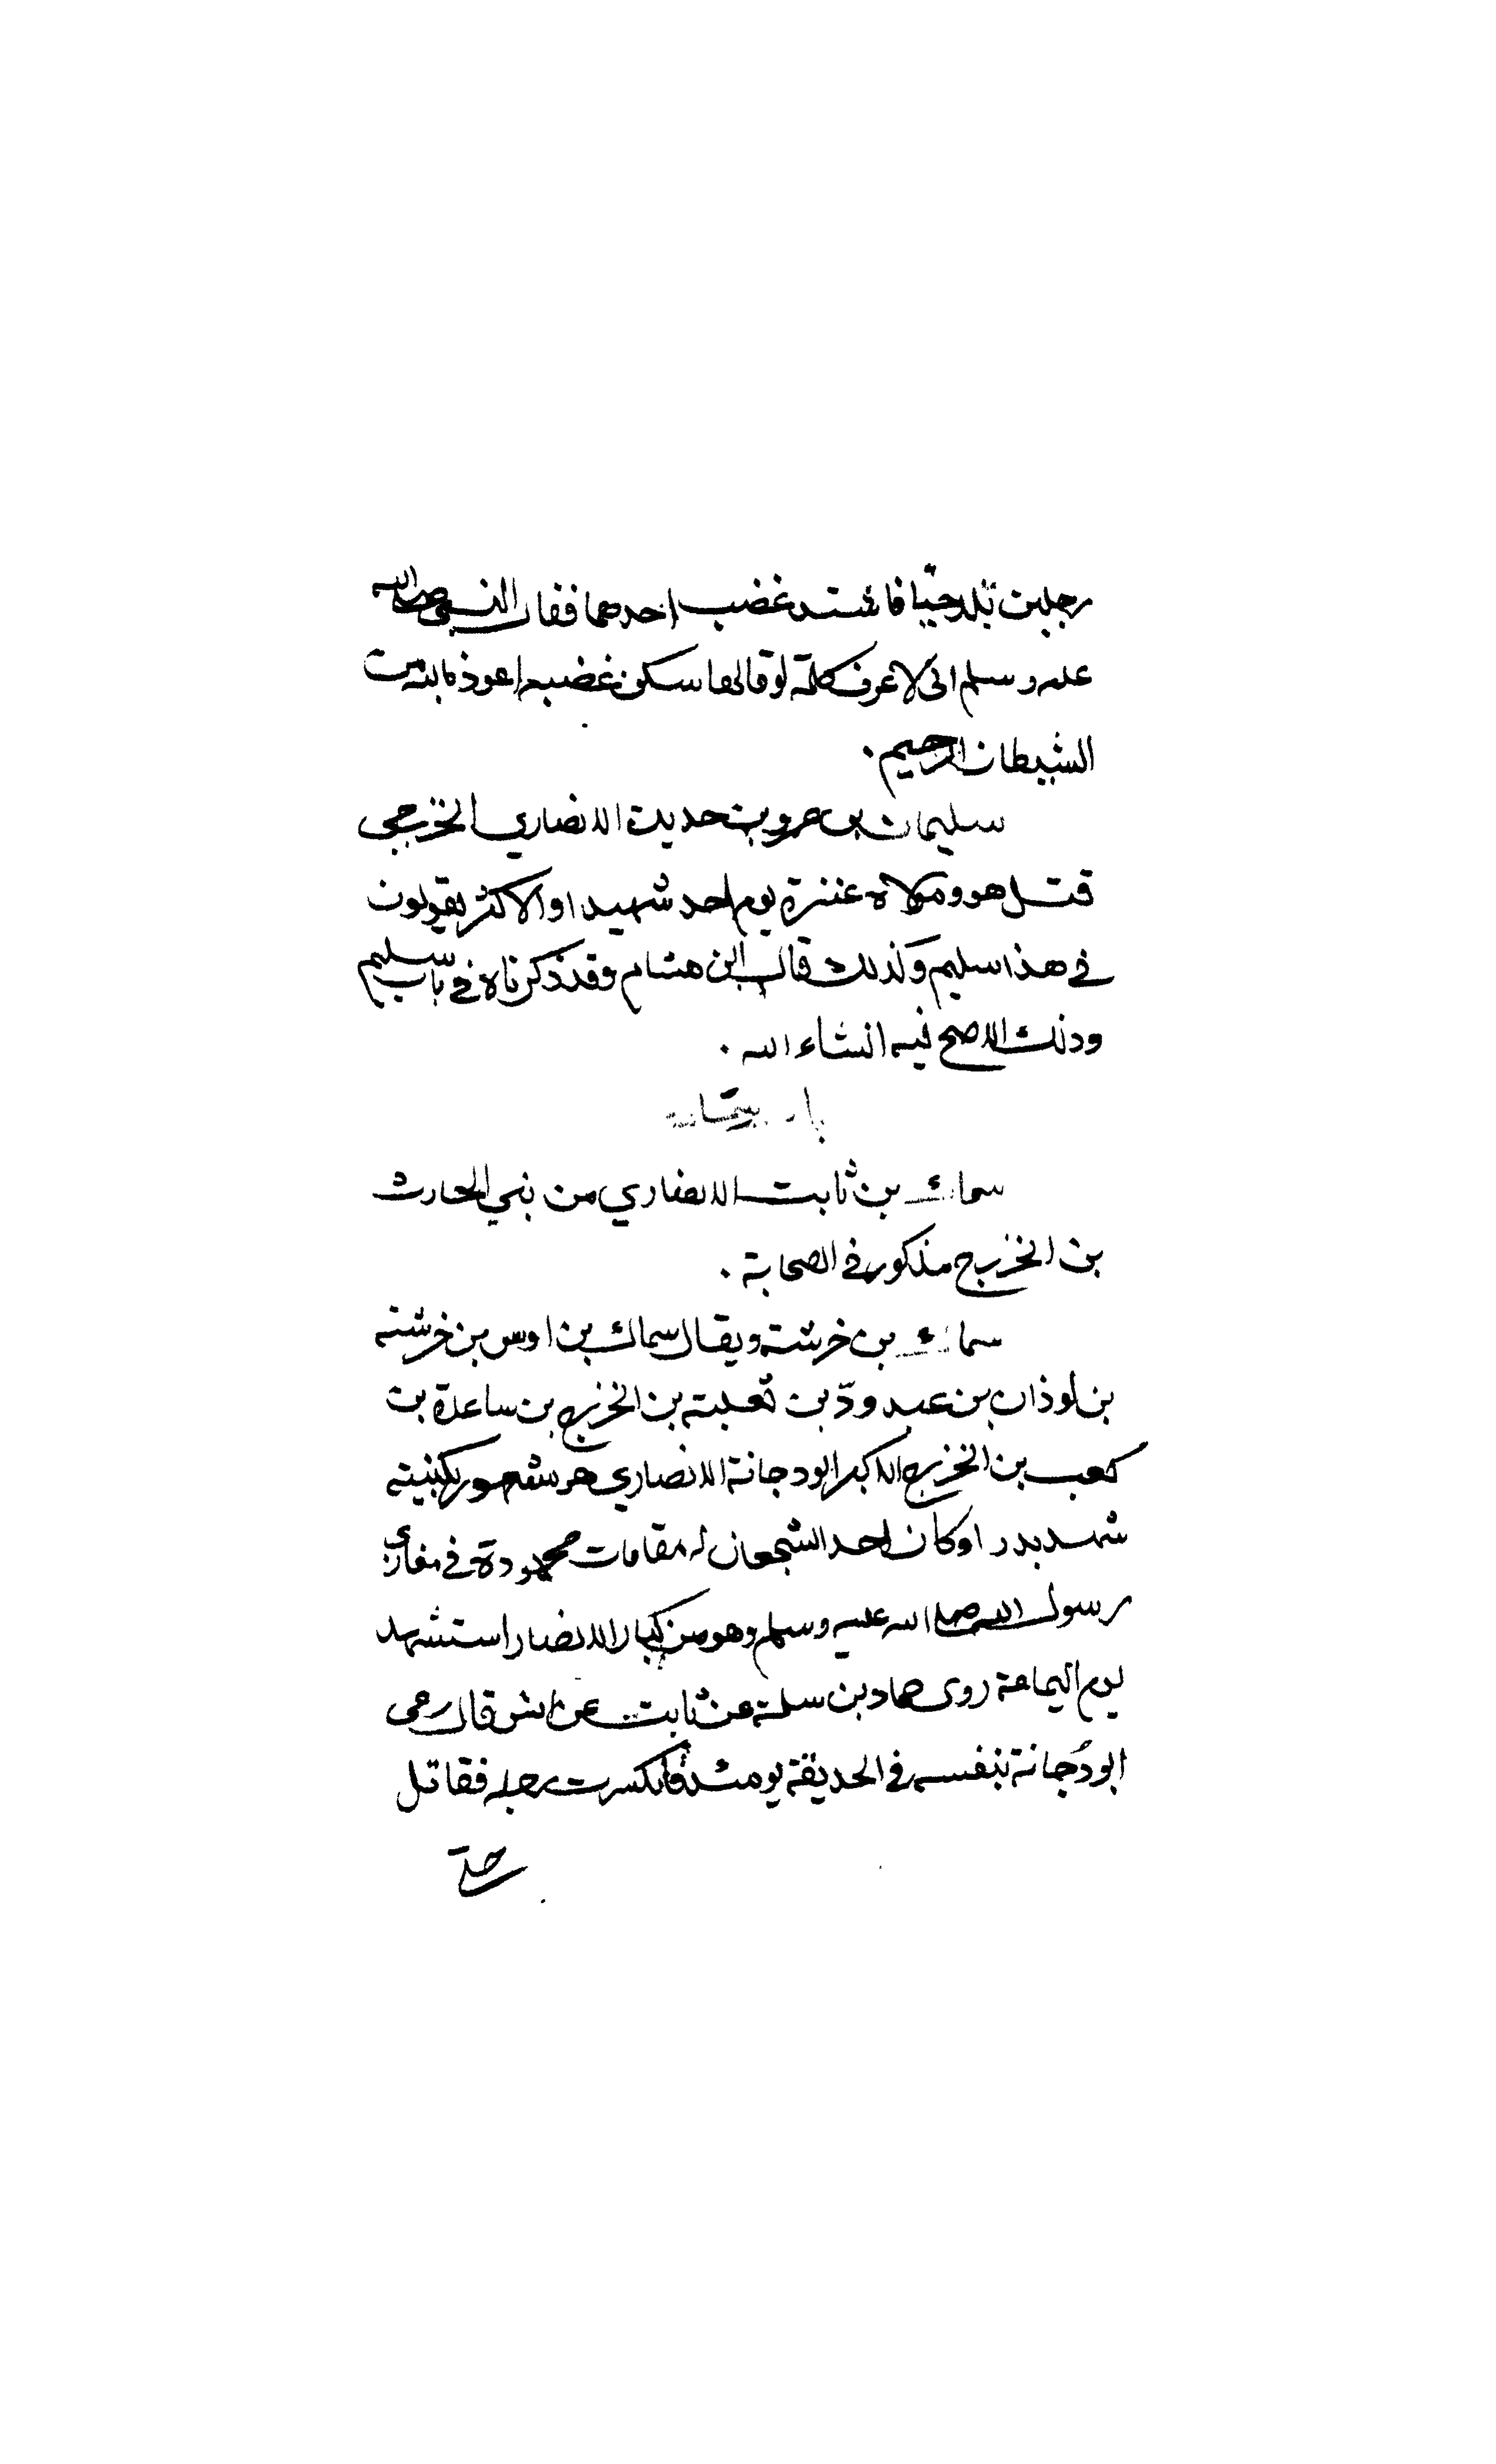 رجلين تلاحيا فاشتد غضب احدهما فقال النبي صلى الله
عليه وسلم اني لاعرف كلمة لو قالها سكن غضبه اعوذ بالله من
الشيطان الرجيم .
سليمان بن عمرو بن حديدة الانصاري الخزرجي
قتل هو ومولاه عنترة يوم احد شهيدا والاكثر يقولون
في هذا سليم وكذلك قال ابن هشام وقد ذكرناه في باب سليم
وذلك الاصح فيه انشاء الله .
باب سماك
سماك بن ثابت الانصاري من بني الحارث
بن الخزرج مذكور في الصحابة .
سماك بن خرشة ويقال سماك بن اوس بن خرشة
بن لوذان بن عبد ودّ بن ثعلبة بن الخزرج بن ساعدة بن
كعب بن الخزرج الاكبر ابو دجانة الانصاري هو مشهور بكنيته
شهد بدرا وكان احد الشجعان له مقامات محمودة في مغازي
رسول الله صلى الله عليه وسلم وهو من كبار الانصار استشهد
يوم اليمامة روى حماد بن سلمة عن ثابت عن انس قال رمى
ابو دُجانة بنفسه في الحديقة يومئذ فانكسرت رجله فقاتل
حتى